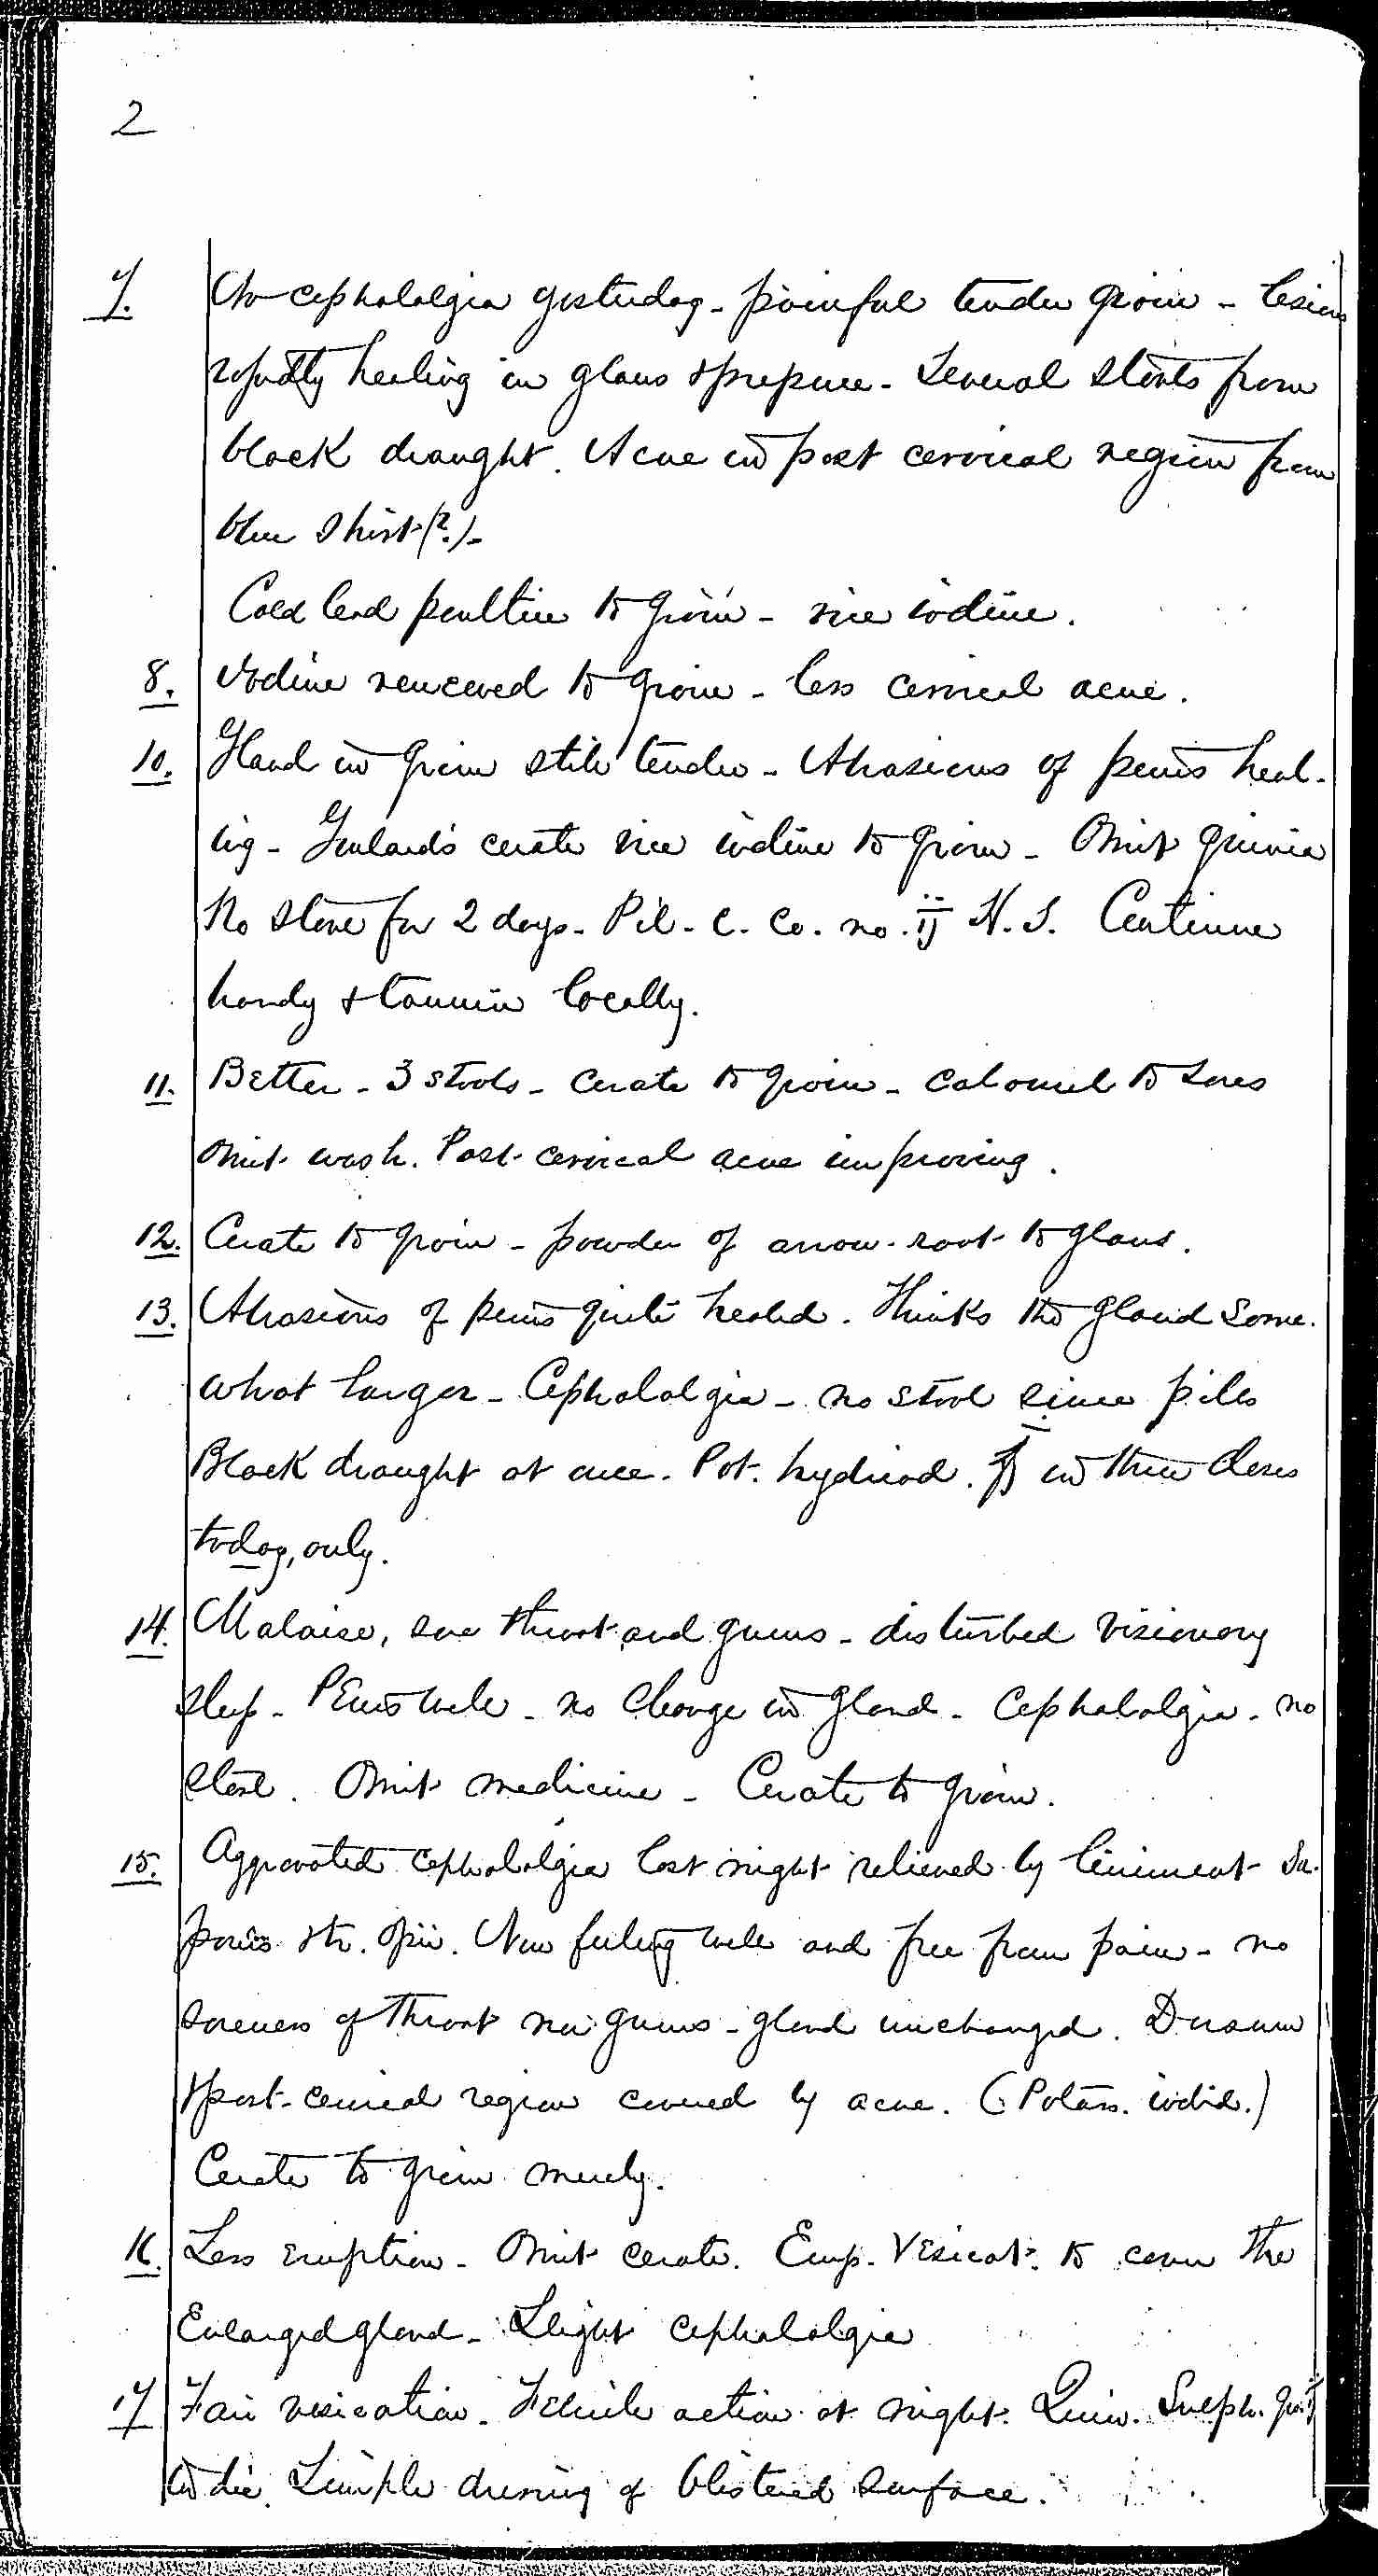 2
7. No cephalalgia yesterday - painful tender groin - lesions
rapidly healing in glans & prepuce - Several stools from
black draught. Acne in post cervical region from
blue shirt (?) -
Cold lead poultice to groin - vice iodine.
8. Iodine renewed to groin - less cervical acne.
10. Gland in groin still tender - Abrasions of penis heal-
ing - Goulard's cerate vice iodine to groin - Omit quinia
No stool for 2 days - Pil. C. Co. no. ij H.S. Continue
brandy & tannin locally.
11. Better - 3 stools - cerate to groin - calomel to sores
omit wash. Post-cervical acne improving.
12. Cerate to groin - powder of arrow-root to glans.
13. Abrasions of penis quite healed. Thinks the gland some-
what larger - Cephalalgia - no stool since pills
Black draught at once. Pot. hydriod. in three doses
today, only.
14. Malaise, sore throat and gums - disturbed visionary
sleep - Penis well - no change in gland - Cephalalgia - no
stool. Omit medicine - Cerate to groin.
15. Aggravated cephalalgia last night relieved by liniment Sa-
ponis & tr. opii. Now feeling well and free from pain - no
soreness of throat nor gums - gland unchanged. Dorsum
& post-cervical region covered by acne. (Potass. iodid.)
Cerate to groin merely.
16. Less eruption - Omit cerate. Emp. Vesicat. to cover the
Enlarged gland - Slight cephalalgia
17 Fair vesication. Febrile action at night. Quin. Sulph. gr. ij
in die. Simple dressing of blistered surface.